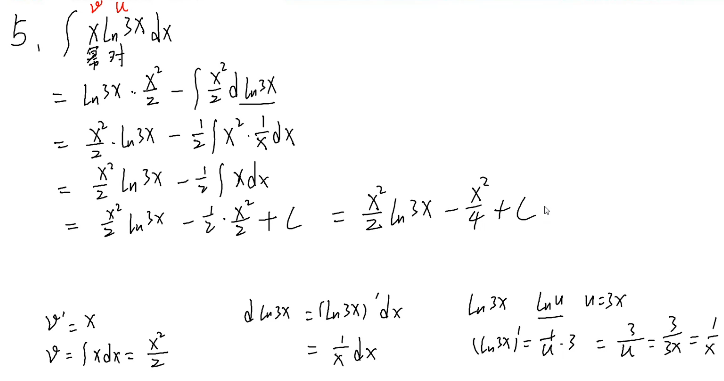 v u
5. ∫ x ln3x dx
幂 对
= ln3x · x²/2 - ∫ x²/2 d ln3x
= x²/2 · ln3x - 1/2 ∫ x² · 1/x dx
= x²/2 ln3x - 1/2 ∫ x dx
= x²/2 ln3x - 1/2 · x²/2 + C = x²/2 ln3x - x²/4 + C
v' = x
v = ∫ x dx = x²/2
d ln3x = (ln3x)' dx
= 1/x dx
ln3x lnu u=3x
(ln3x)' = 1/u · 3 = 3/u = 3/3x = 1/x